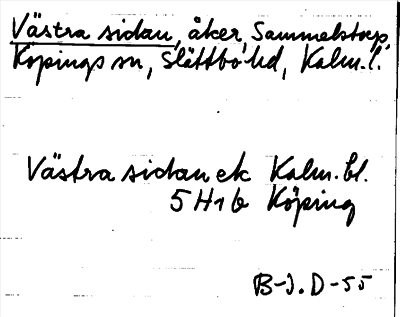 Västra sidan, åker, Sammelstorp,
Köpings sn, Slättbo hd, Kalm. l.
Västra sidan ek Kalm. bl.
5 H 1 b Köping
B-J. D-55